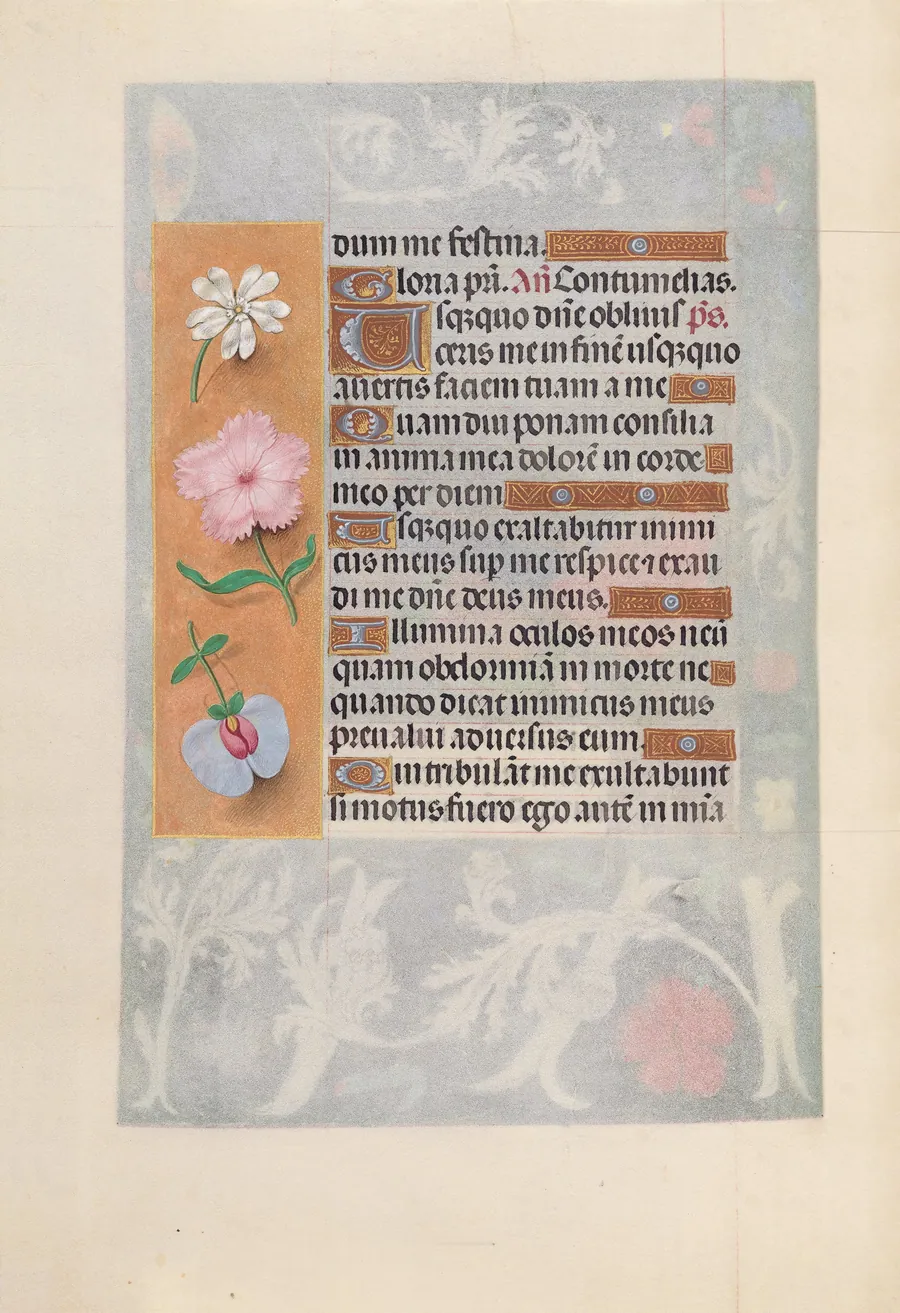 dum me festina.
Gloria pr̃i. Añ Contumelias.
Usqꝫquo dñe obliuis p̃s.
ceris me in finẽ usqꝫquo
auertis faciem tuam a me
Quamdiu ponam consilia
in anima mea dolorẽ in corde
meo per diem
Usqꝫquo exaltabitur inimi
cus meus sup me respice ⁊ exau
di me dñe deus meus.
Illumina oculos meos neũ
quam obdormiã in morte ne
quando dicat inimicus meus
preualui aduersus eum.
Qui tribulãt me exultabunt
si motus fuero ego autẽ in mĩa